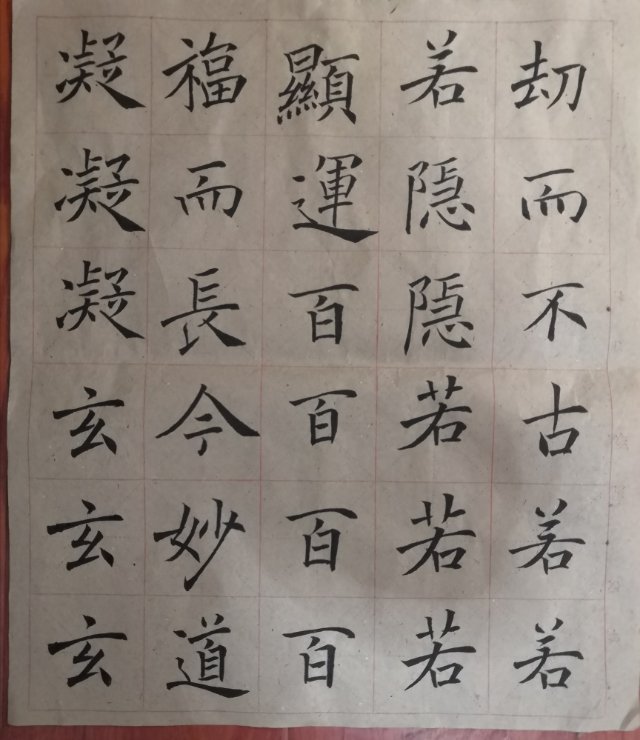 劫而不古若若
若隐隐若若若
顯運百百百百
福而長今妙道
凝凝凝玄玄玄